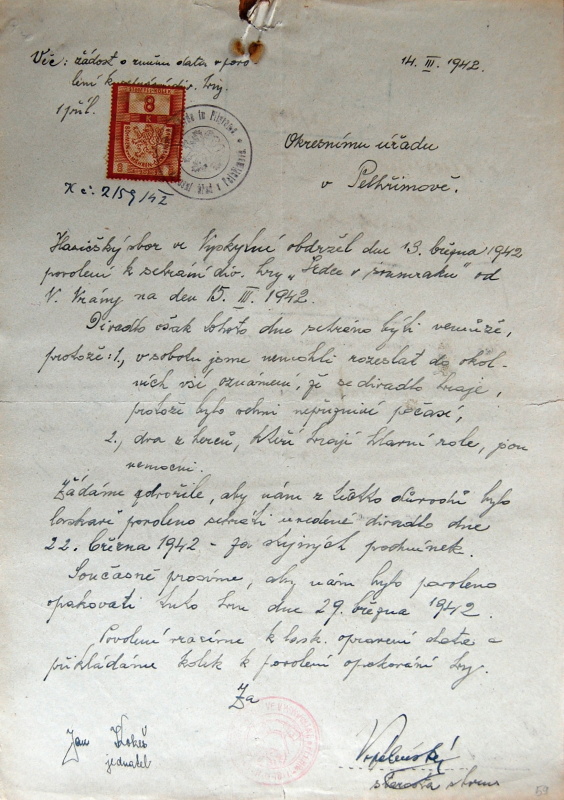 Věc: žádost o změnu data v povo-
lení k sehrání div. hry
1 příl.
14. III. 1942.
8
K
8
8
Okresnímu úřadu
v Pelhřimově.
K č: 2/59/42
Hasičský sbor ve Vyskytné obdržel dne 13. března 1942
povolení k sehrání div. hry „Srdce v soumraku" od
V. Vrány na den 15. III. 1942.
Divadlo však tohoto dne sehráno býti nemůže,
protože: 1., v sobotu jsme nemohli rozeslat do okol-
ních vsí oznámení, že se divadlo hraje,
protože bylo velmi nepříznivé počasí,
2., dva z herců, kteří hrají hlavní role, jsou
nemocni.
Žádáme zdvořile, aby nám z těchto důvodů bylo
laskavě povoleno sehráti uvedené divadlo dne
22. března 1942 - za stejných podmínek.
Současně prosíme, aby nám bylo povoleno
opakovati tuto hru dne 29. března 1942.
Povolení vracíme k lask. opravení data a
přikládáme kolek k povolení opakování hry.
Za
Jan
jednatel
starosta sboru